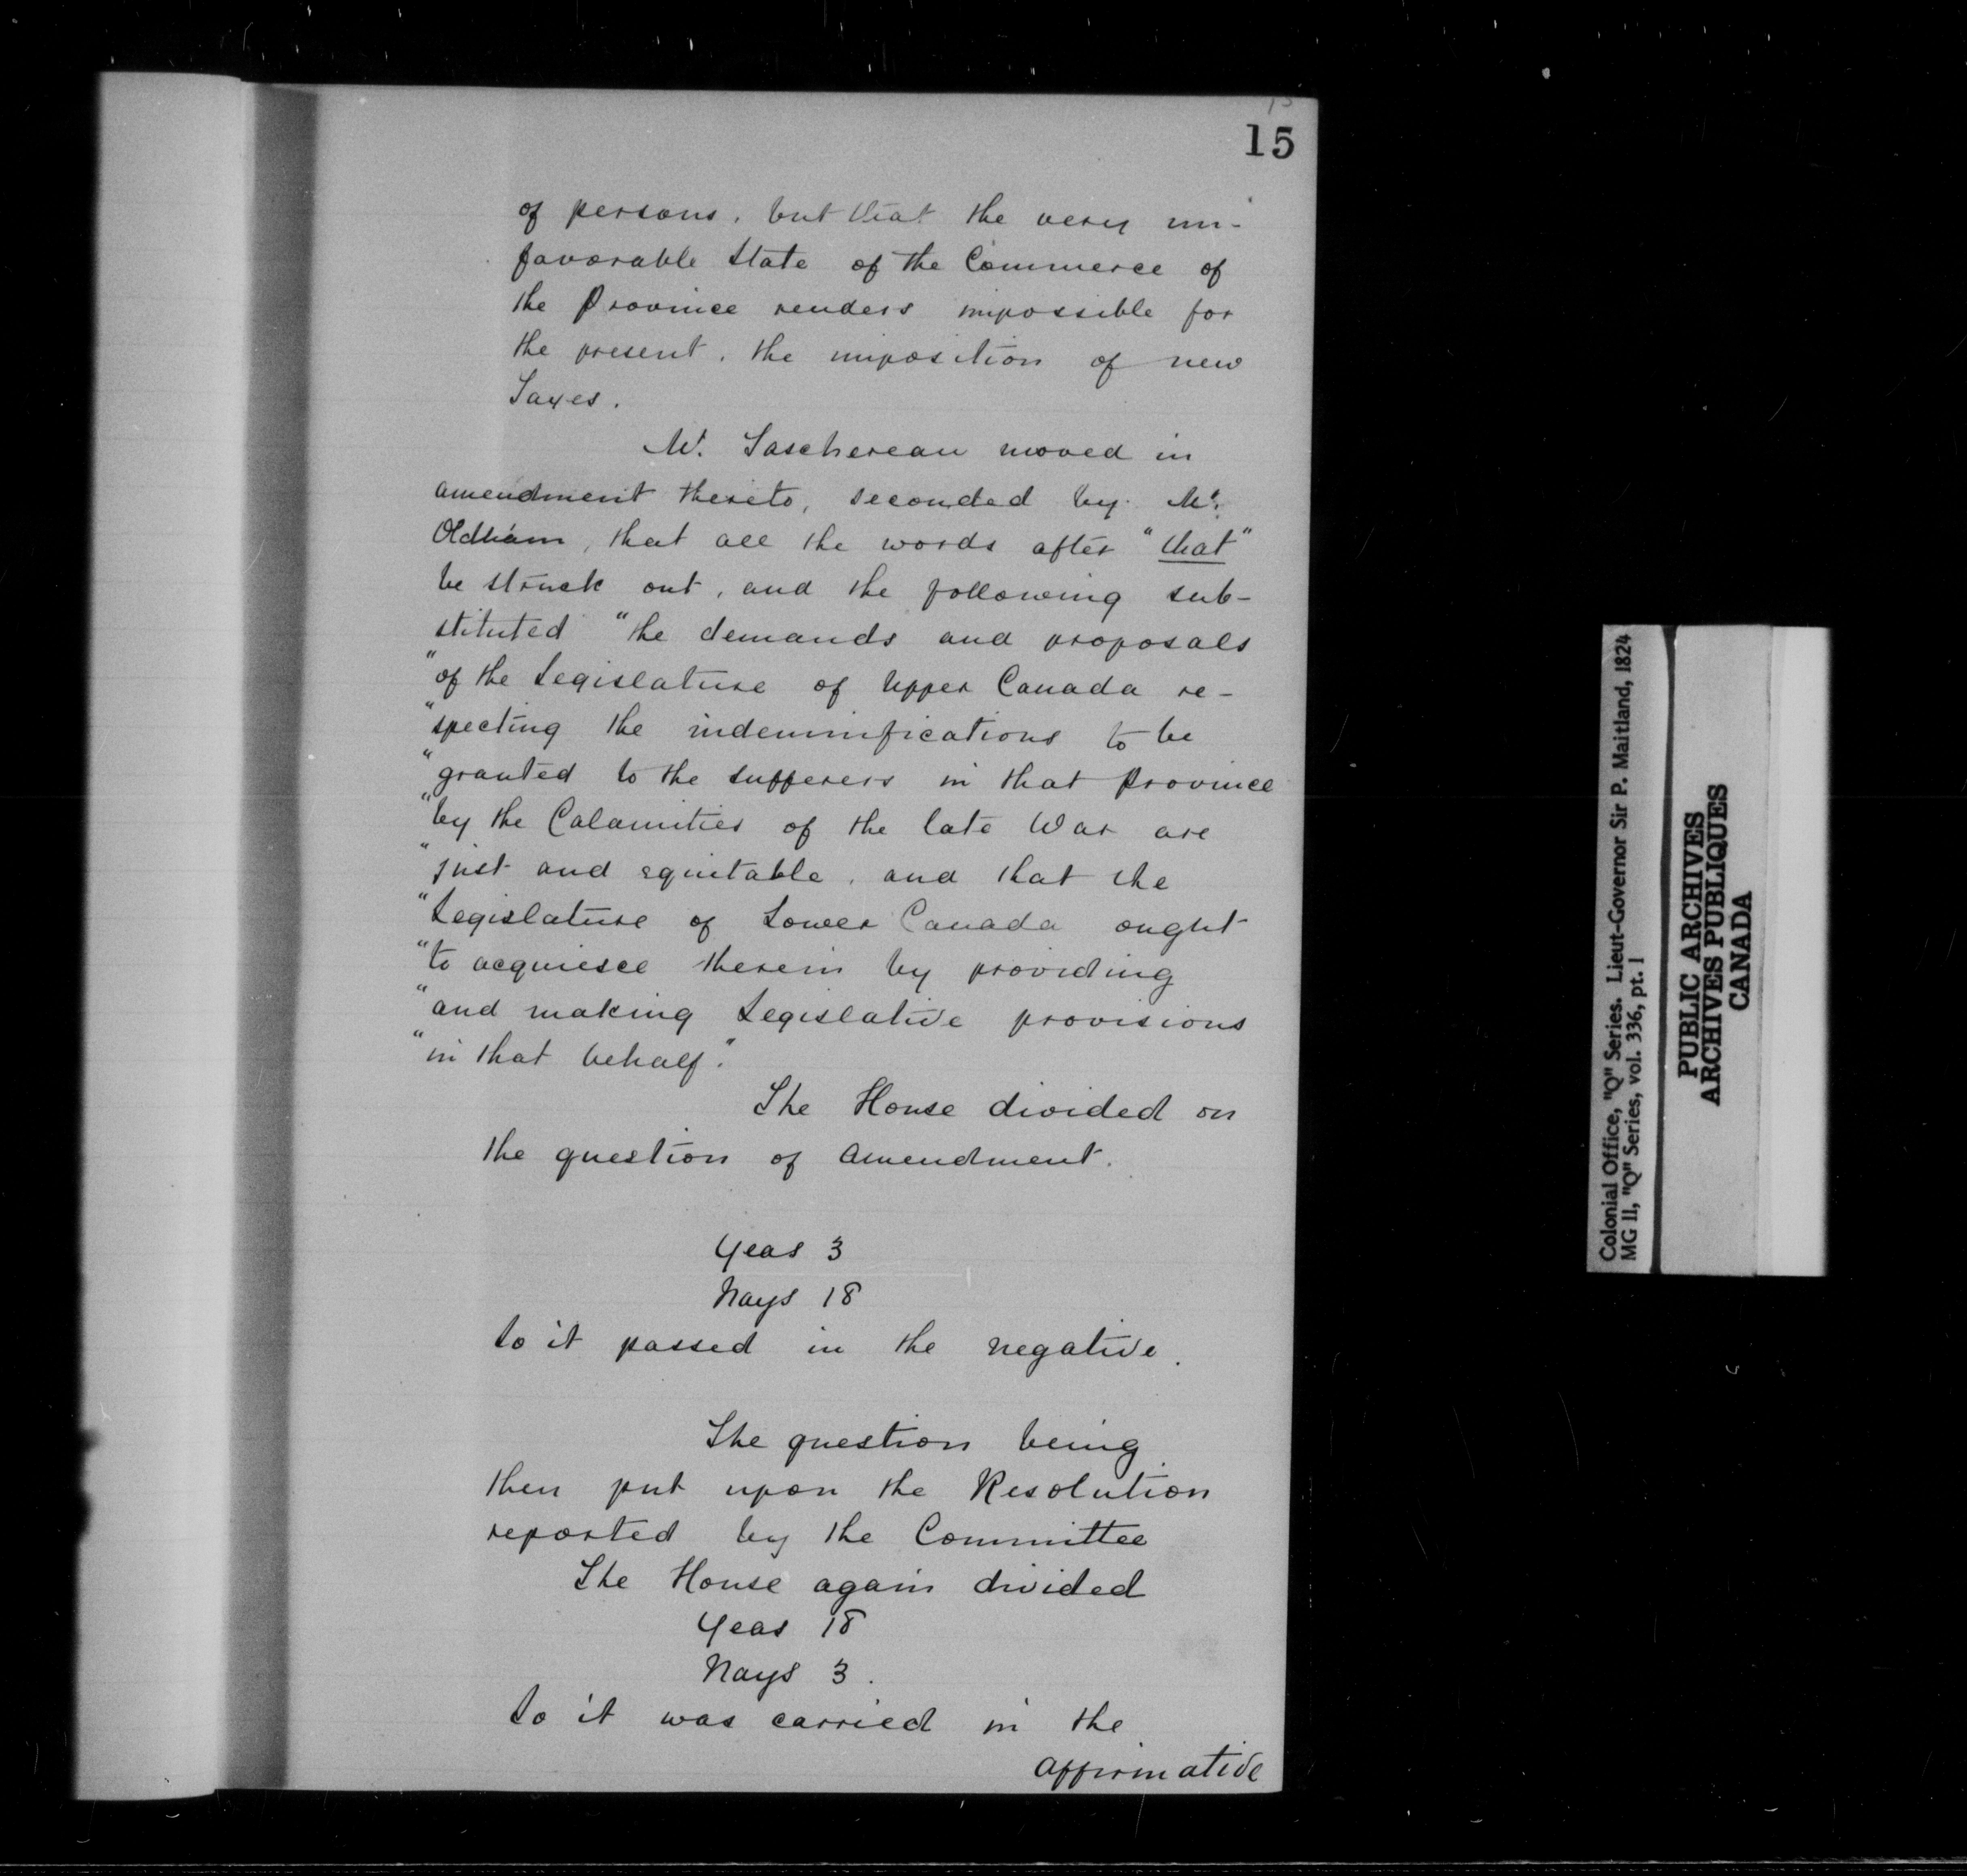 15
of persons, but that the very un-
favorable State of the Commerce of
the Province renders impossible for
the present, the imposition of new
Taxes.
Mr. Taschereau moved in
amendment thereto, seconded by Mr.
Oldham, that all the words after "that"
be struck out, and the following sub-
stituted "the demands and proposals
"of the Legislature of Upper Canada re-
"specting the indemnifications to be
"granted to the sufferers in that Province
"by the Calamities of the late War are
"just and equitable, and that the
"Legislature of Lower Canada ought
"to acquiesce therein by providing
"and making Legislative provisions
"in that behalf."
The House divided on
the question of amendment.
Yeas 3
Nays 18
So it passed in the negative.
The question being
then put upon the Resolution
reported by the Committee
The House again divided
Yeas 18
Nays 3.
So it was carried in the
affirmative
Colonial Office, "Q" Series. Lieut-Governor Sir P. Maitland, 1824
MG 11, "Q" Series, vol. 336, pt. 1
PUBLIC ARCHIVES
ARCHIVES PUBLIQUES
CANADA